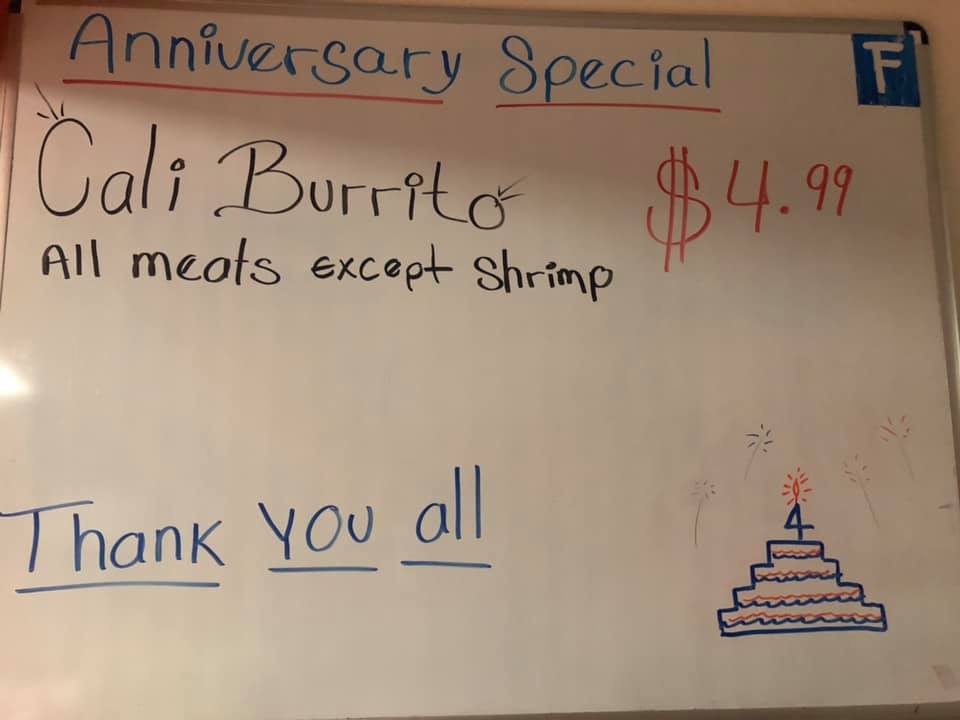 Anniversary Special
F
Cali Burrito $4.99
All meats except Shrimp
Thank you all
4